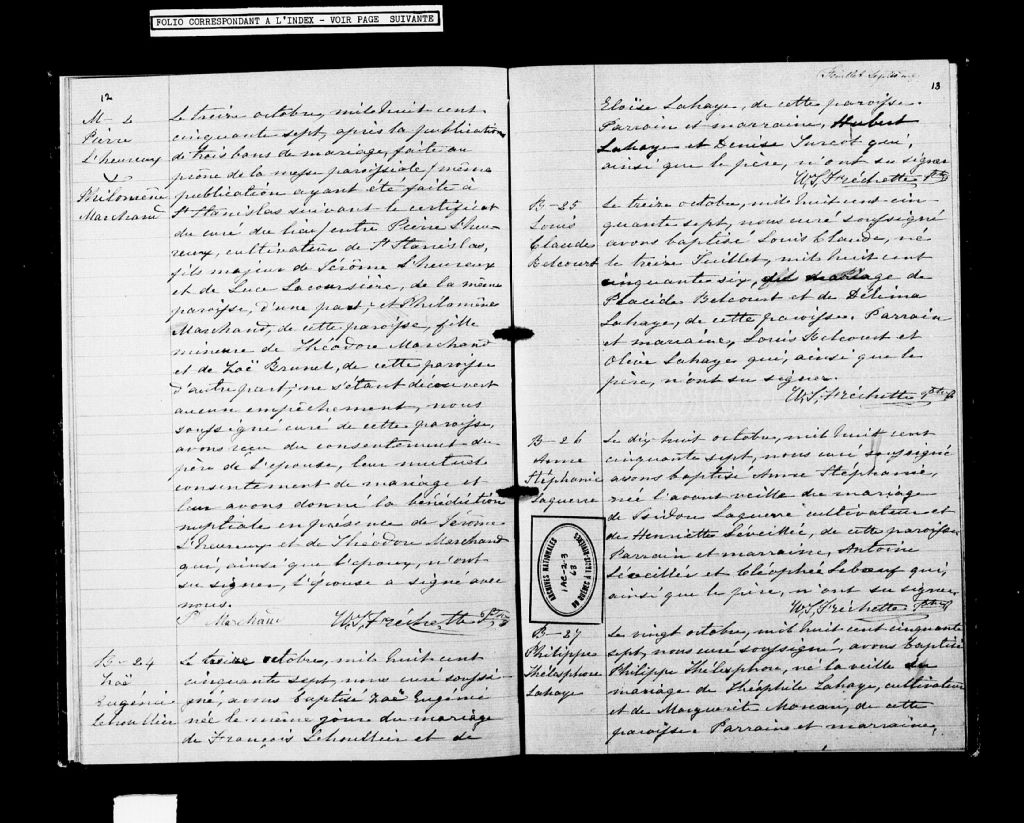 FOLIO CORRESPONDANT A L'INDEX - VOIR PAGE SUIVANTE
12
M-6
Pierre
L'heureux
&
Philomène
Marchand
Le treize octobre, mil huit cent
cinquante sept, après la publication
de trois bans de mariage, faite au
prône de la messe paroissiale (même
publication ayant été faite à
St Stanislas suivant le certificat
du curé du lieu) entre Pierre L'heu-
reux, cultivateur de St Stanislas,
fils majeur de Jérôme L'heureux
et de Luce Lacoursière, de la même
paroisse, d'une part; et Philomène
Marchand, de cette paroisse, fille
mineure de Théodore Marchand
et de Zoë Brunet, de cette paroisse
d'autre part; ne s'étant découvert
aucun empêchement, nous
soussigné curé de cette paroisse,
avons reçu du consentement du
père de l'épouse, leur mutuel
consentement de mariage et
leur avons donné la bénédiction
nuptiale en présence de Jérôme
L'heureux et de Théodore Marchand
qui, ainsi que l'époux, n'ont
su signer. L'épouse a signé avec
nous.
P Marchand W. S. Fréchette Ptre
B-24
Zoë
Eugénie
Lehoullier
Le treize octobre, mil huit cent
cinquante sept, nous curé soussi-
gné, avons baptisé Zoë Eugénie
née le même jour du mariage
de François Lehoullier et de
Feuillet septième
13
Eloïse Lahaye, de cette paroisse.
Parrain et marraine, Hubert
Lahaye et Denise Turcot qui,
ainsi que le père, n'ont su signer
W. S. Fréchette Ptre
B-25
Louis
Claude
Belcourt
Le treize octobre, mil huit cent cin-
quante sept, nous curé soussigné
avons baptisé Louis Claude, né
le treize Juillet, mil huit cent
cinquante six, du mariage de
Placide Belcourt et de Délima
Lahaye, de cette paroisse. Parrain
et marraine, Louis Belcourt et
Olive Lahaye qui, ainsi que le
père, n'ont su signer.
W. S. Fréchette Ptre
B-26
Anne
Stéphanie
Laguerre
Le dix huit octobre, mil huit cent
cinquante sept, nous curé soussigné
avons baptisé Anne Stéphanie,
née l'avant veille du mariage
de Isidore Laguerre cultivateur et
de Henriette Léveillée, de cette paroisse
Parrain et marraine, Antoine
Léveillée et Cléophée Lebœuf qui,
ainsi que le père, n'ont su signer
W. S. Fréchette Ptre
ARCHIVES NATIONALES
1AC-2-3
63
DU QUEBEC A TROIS-RIVIERES
B-27
Philippe
Thélesphore
Lahaye
Le vingt octobre, mil huit cent cinquante
sept, nous curé soussigné, avons baptisé
Philippe Thélesphore, né la veille du
mariage de Théophile Lahaye, cultivateur
et de Marguerite Moreau, de cette
paroisse. Parrain et marraine,